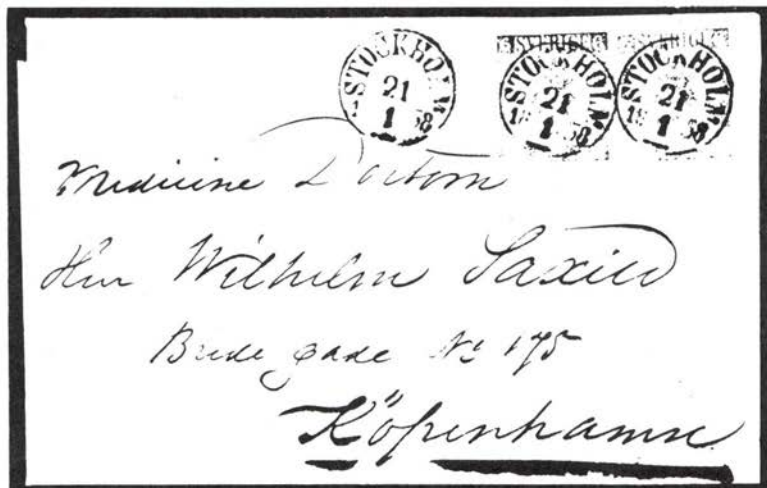 STOCKHOLM 21 1 1858
SVERIGE
STOCKHOLM 21 1 58
STOCKHOLM 21 1 18 58
Medicine Doctorn
Herr Wilhelm Saxild
Bredegade No 175
Köpenhamn